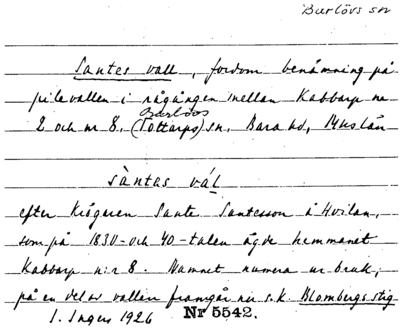 Burlövs sn
Santes vall, fordom benämning på
pilevallen i rågången mellan Kabbarp nr
Burlövs
2 och nr 8, (Tottarps) sn, Bara hd, M-hus län
sàntas vál
efter Krögaren Sante Santesson å Hvilan,
som på 1830- och 40-talen ägde hemmanet
Kabbarp n:r 8. Namnet numera ur bruk;
på en del av vallen framgår nu s.k. Blombergs stig
1. Ingers 1926 Nr 5542.